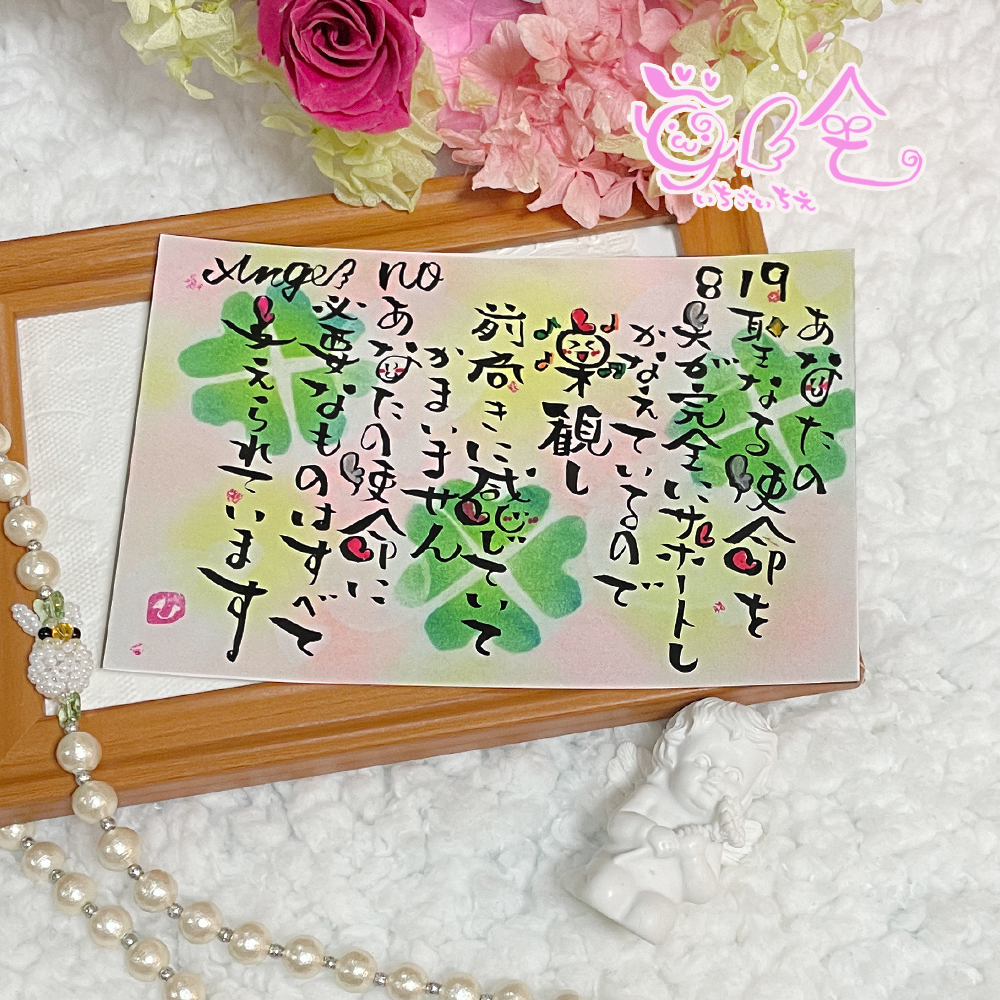 Angel no 819
あなたの
聖なる使命を
天が完全にサポートし
かなえているので
楽観し
前向きに感じていて
かまいません
あなたの使命に
必要なものはすべて
与えられています
いちごいちえ